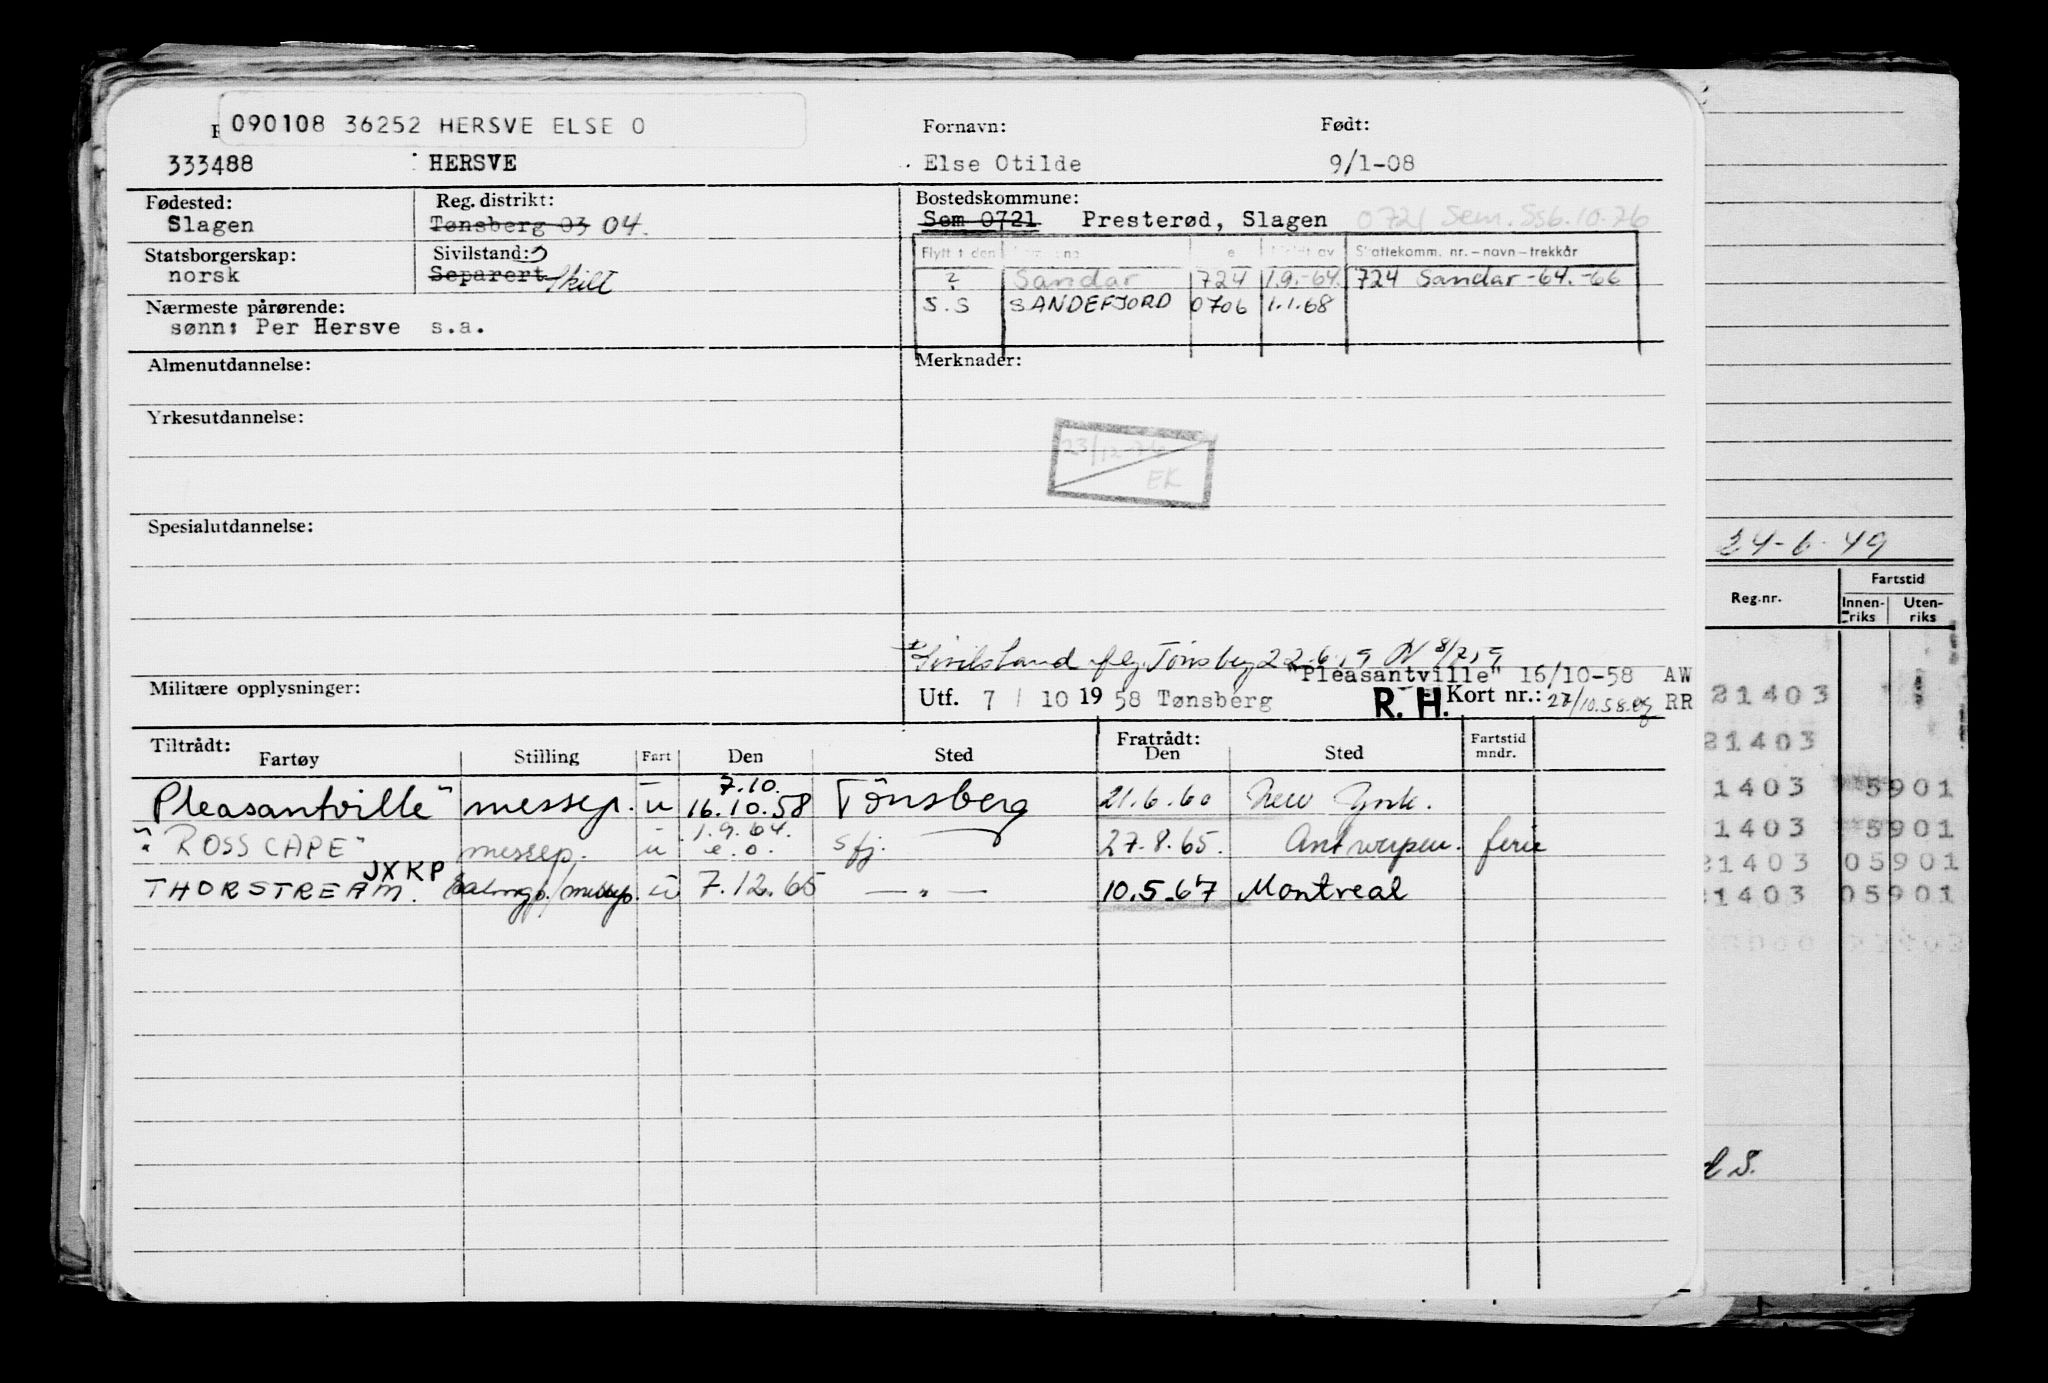 090108 36252 HERSVE ELSE O
Fornavn: Født:
333488 HERSVE Else Otilde 9/1-08
Fødested: Reg. distrikt: Bostedskommune:
Slagen Tønsberg 03 04. Sem 0721 Presterød, Slagen 0721 Sem. Ssb. 10.76
Statsborgerskap: Sivilstand: Flytt den Skattekomm. nr. – navn – trekkår
norsk Separert Skilt Sandar 724 1.9.-64. 724 Sandar -64.-66
Nærmeste pårørende: S.S SANDEFJORD 0706 1.1.68
sønn: Per Hersve s.a.
Almenutdannelse: Merknader:
Yrkesutdannelse:
23/12-76
EK
Spesialutdannelse:
24-6-49
Fartstid
Reg.nr. Innen-riks Uten-riks
Sivilstand flg. Tønsberg 22.6.59
"Pleasantville" 16/10-58 AW
Militære opplysninger: Utf. 7 / 10 19 58 Tønsberg R. H. Kort nr.: 27/10.58. RR
21403
Tiltrådt: Fratrådt: Fartstid mndr.
Fartøy Stilling Fart Den Sted Den Sted
21403
Pleasantville" messep. u 7.10. 16.10.58 Tønsberg 21.6.60 New York.
1403 5901
"ROSS CAPE" messep. u 1.9.64. e.o. sfj. 27.8.65. Antwerpen. ferie
1403 5901
21403 05901
JXKP
THORSTREAM. messep. u 7.12.65 — " — 10.5.67 Montreal
21403 05901